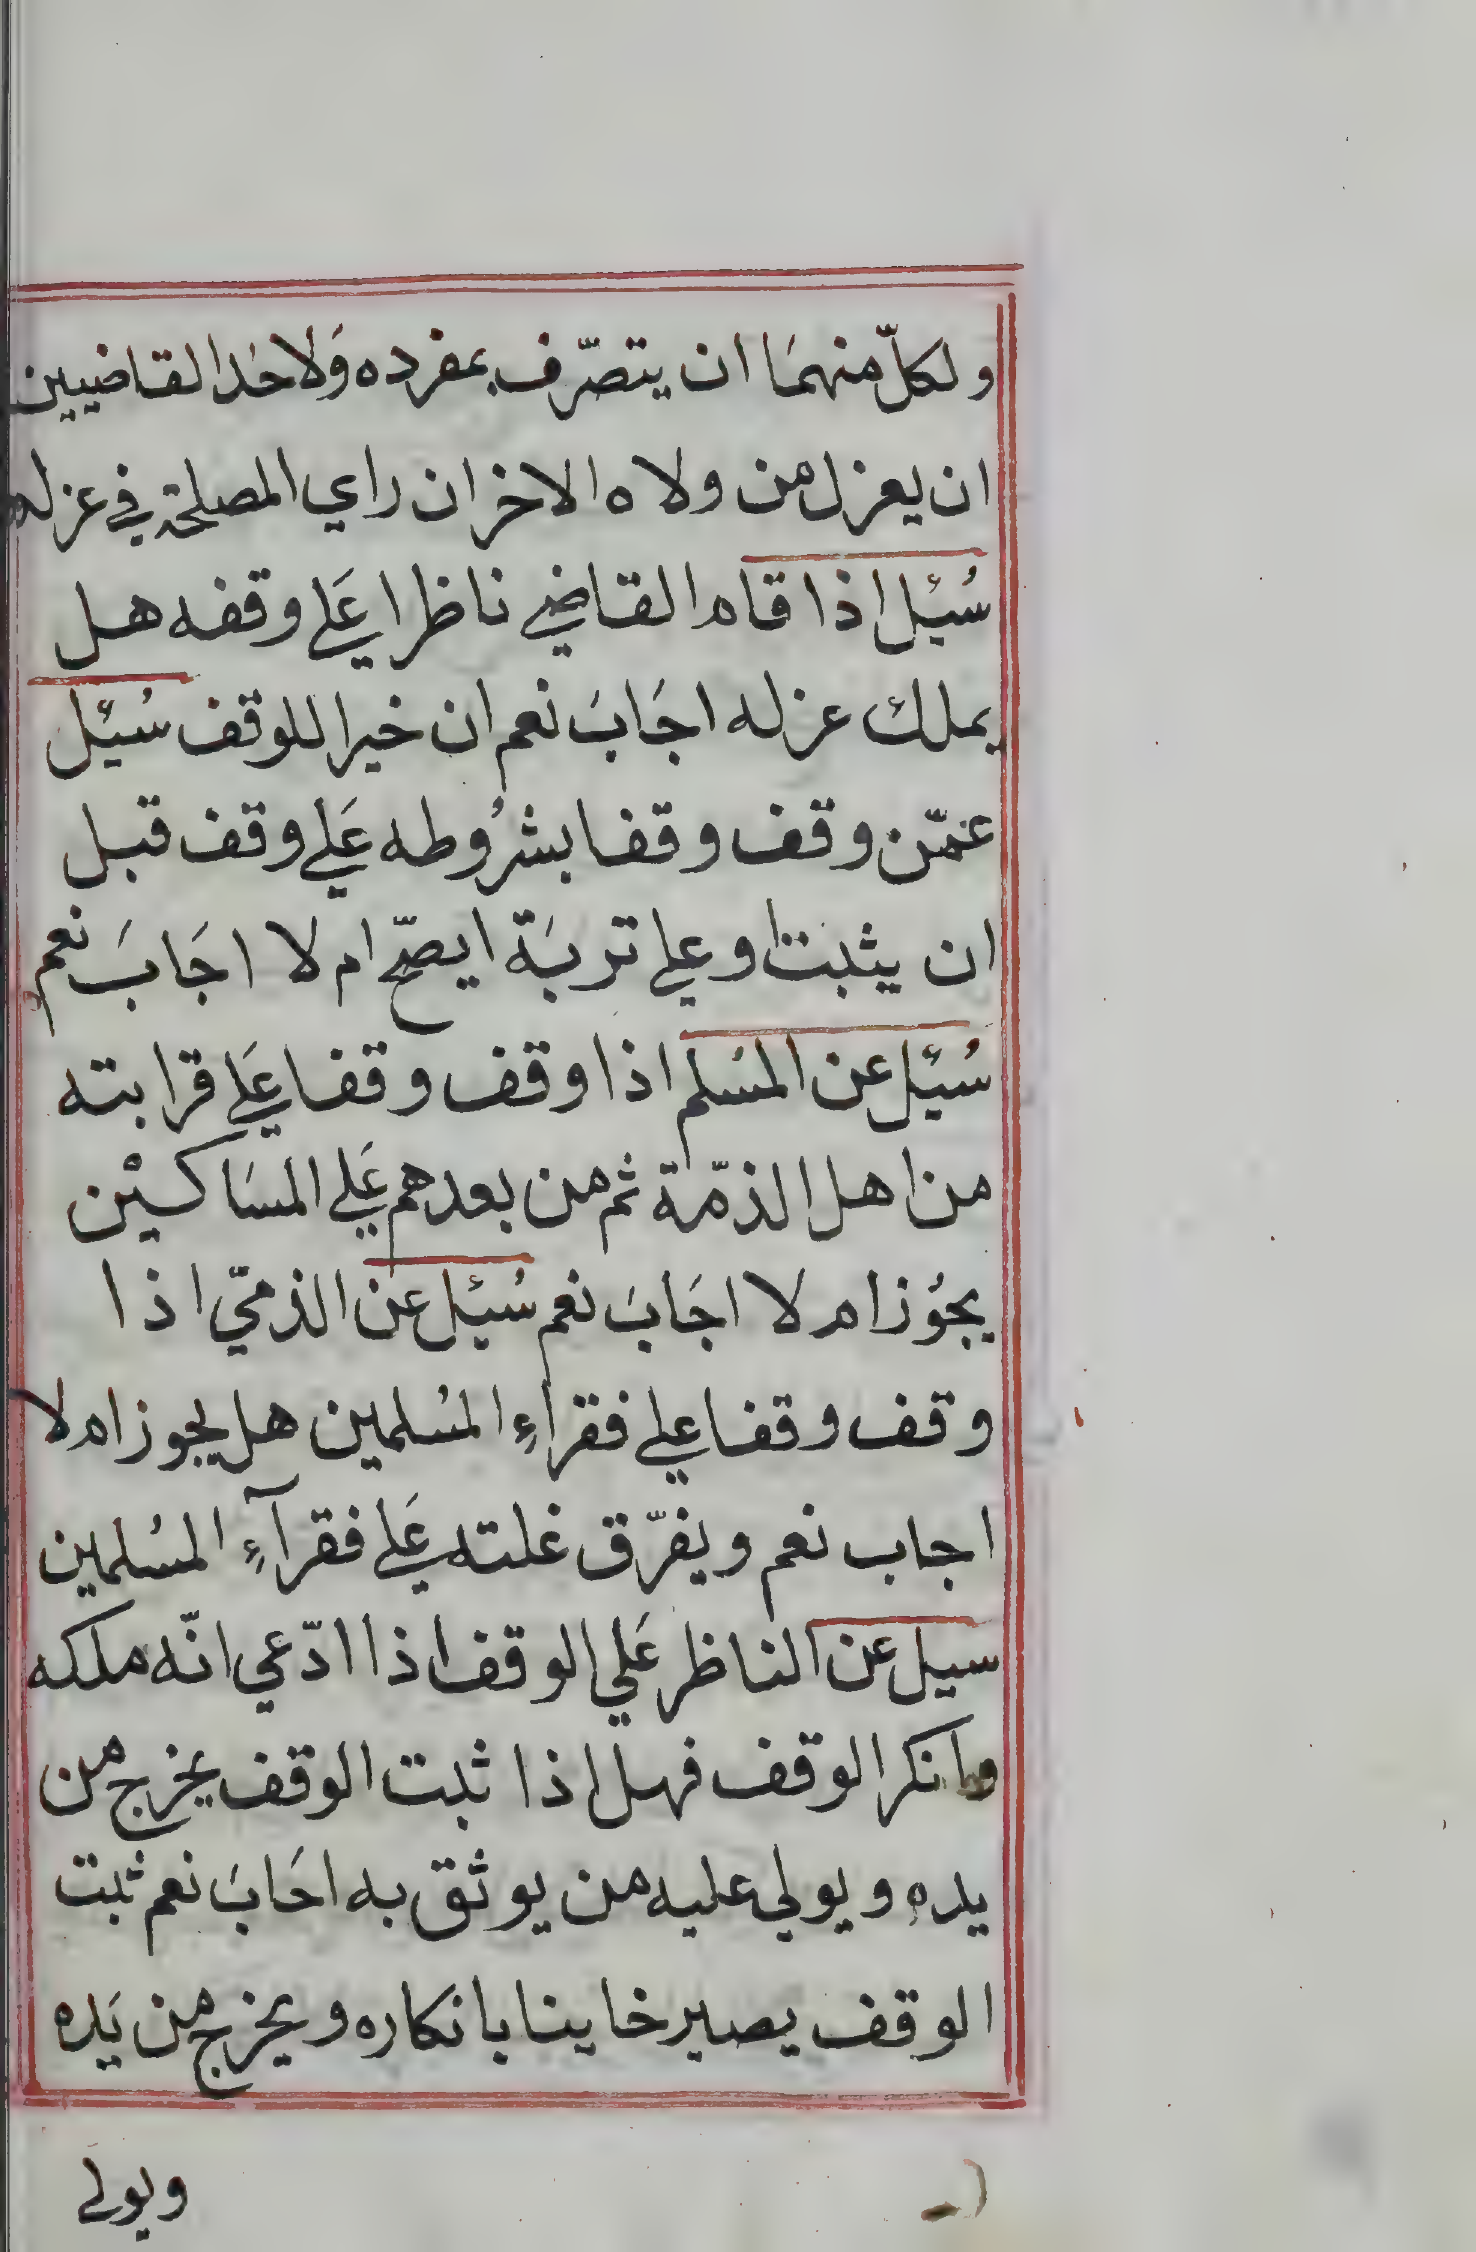 ولكلّ منهمَا ان يتصّرف بمفرده وَلاحَدا القاضيين
ان يعزل من ولاه الاخر ان راي المصلحة في عزله
سُئل اذا قام القاضي ناظرا عَلي وقفه هل
يملك عزله اجَابَ نعم ان خيرا للوقف سُئل
عمّن وقف وقفا بشرُوطه عَلي وقف قبل
ان يثبت او علي تربَة ايصحّ ام لا اجَابَ نعم
سُئل عن المسَلم اذا وقف وقفا عَلي قرابته
من اهل الذمّة ثم من بعدهم عَلي المسَاكيْن
يجوُز ام لا اجَابَ نعم سُئل عن الذميّ اذا
وقف وقفا علي فقراءِ المسُلمين هل يجوز ام لا
اجاب نعم ويفرّق غلته عَلي فقرآءِ المسُلمين
سيل عن الناظر عَلي الوقف اذا ادّعي انّه ملكه
وانكر الوقف فهل اذا ثبت الوقف يخرج من
يده ويولي عليه من يوثق به احَابَ نعم ثبت
الوقف يصير خاينا بانكاره ويخرج من يَده
ويولي